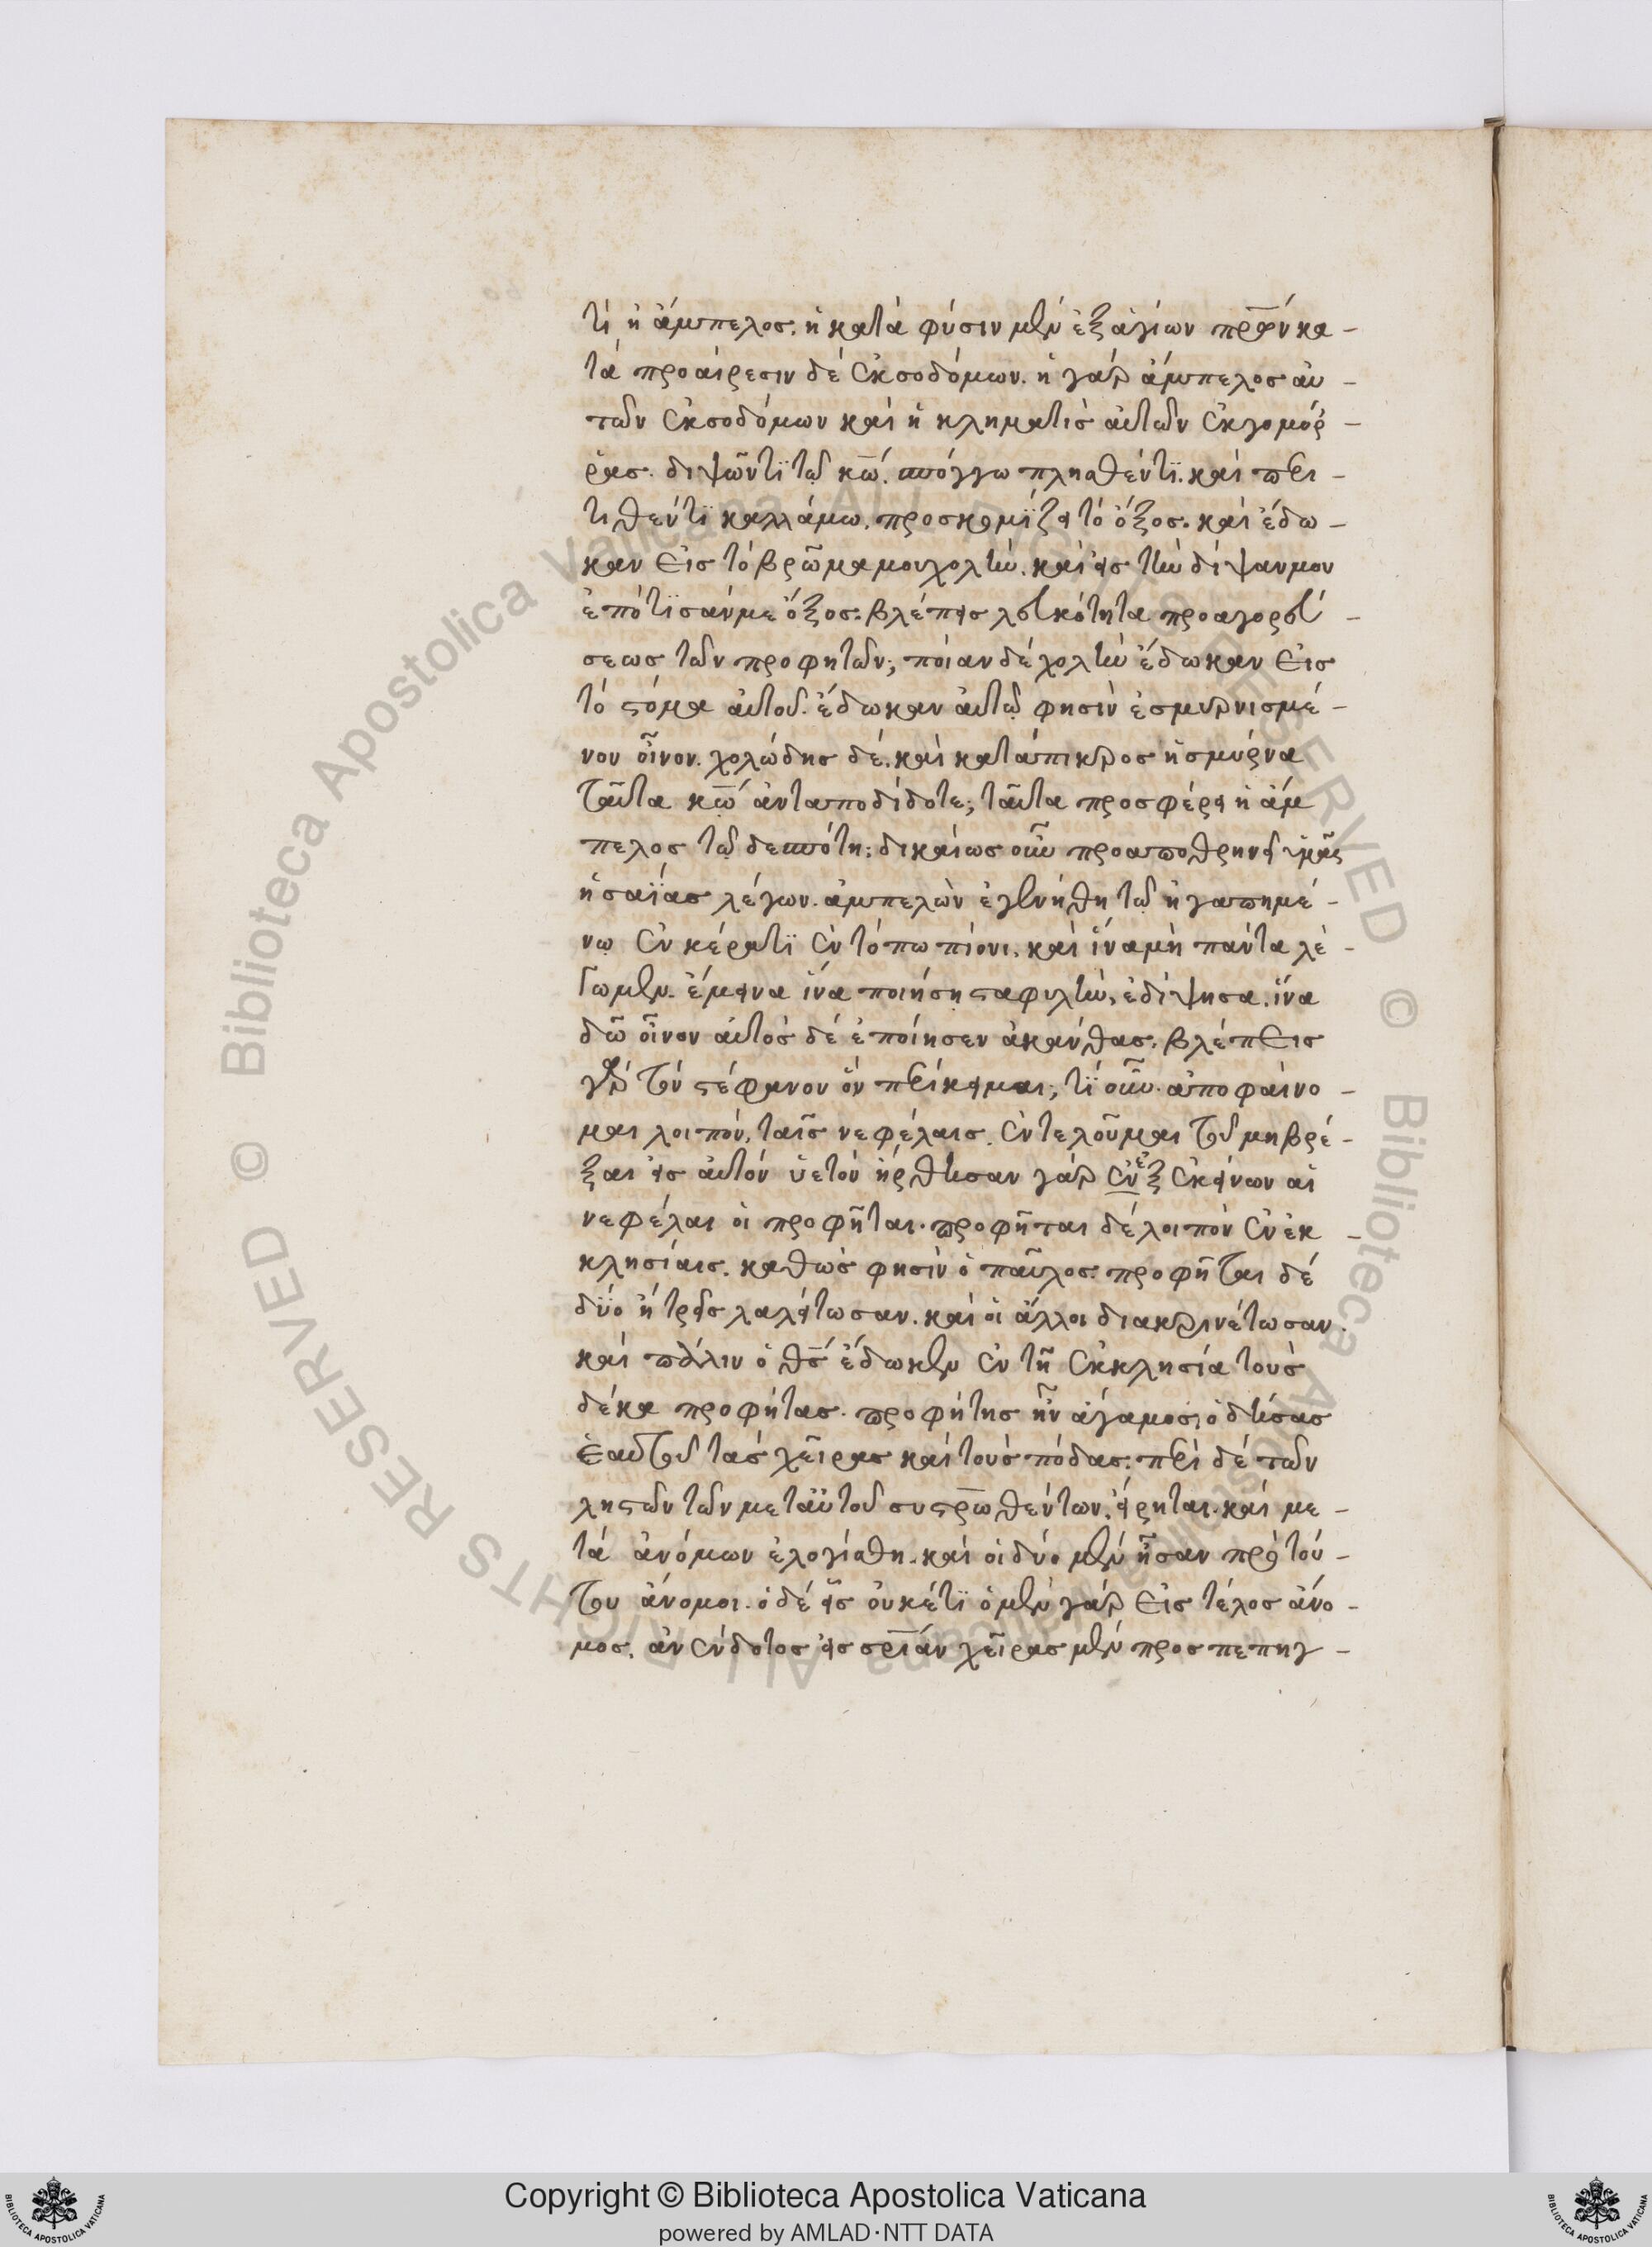 τί ἡ ἄμπελος. ἡ κατὰ φύσιν μὲν ἐξ ἁγίων πρων κα -
τὰ προαίρεσιν δὲ ἐκ σοδόμων. ἡ γὰρ ἄμπελος αὐ -
των ἐκ σοδόμων καὶ ἡ κληματὶς αὐτῶν ἐκ γομόρ -
ρας. διψῶντϊ τῶ κω. σπόγγω πλησθέντϊ. καὶ περι -
τιθέντϊ καλλάμω. προσκομϊζει τὸ ὄξος. καὶ ἔδω -
καν εἰς τὸ βρῶμα μου χολὴν. καὶ εἰς τὴν δίψαν μου
ἐπότϊσάν με ὄξος. βλέπεις λευκότητα προαγορεύ -
σεως τῶν προφητῶν; ποίαν δὲ χολὴν ἔδωκαν εἰς
τὸ στόμα αὐτοῦ. ἔδωκαν αὐτῶ φησὶν ἐσμυρνισμέ -
νον οἶνον. χολώδης δὲ. καὶ κατάπικρος ἡ σμύρνα
ταῦτα κω ἀνταποδίδοτε; ταῦτα προσφέρει ἡ ἄμ
πελος τῶ δεσπότη; δικαίως οὖν προαποθρηνεῖ ὑμᾶς
ἡσαΐας λέγων. ἀμπελὼν ἐγενήθη τῶ ἠγαπημέ -
νω ἐν κέρατϊ ἐν τόπω πίονι. καὶ ἵνα μὴ πάντα λέ -
γωμεν. ἔμεινα ἵνα ποιήση σταφυλὴν, ἐδίψησα. ἵνα
δῶ οἶνον αὐτὸς δὲ ἐποίησεν ἀκάνθας. βλέπεις
γὰρ τὸν στέφανον ὃν περίκειμαι; τϊ οὖν. ἀποφαίνο -
μαι λοιπόν. ταῖς νεφέλαις. ἐντελοῦμαι τοῦ μὴ βρέ -
ξαι εἰς αὐτὸν ὑετὸν ἤρθησαν γὰρ ἐν ἐξ ἐκείνων αἱ
νεφέλαι οἱ προφῆται. προφῆται δὲ λοιπὸν ἐν ἐκ -
κλησίαις. καθὼς φησὶν ὁ παῦλος. προφῆται δὲ
δϋο ἢ τρεῖς λαλείτωσαν. καὶ οἱ ἄλλοι διακρινέτωσαν.
καὶ πάλιν ὁ θς ἔδωκεν ἐν τῆ ἐκκλησία τοὺς
δέκα προφήτας. προφήτης ἦν ἄγαμος, ὁ δήσας
ἑαυτοῦ τὰς χεῖρας καὶ τοὺς πόδας. περὶ δὲ τῶν
ληστῶν τῶν μετ αὐτοῦ συστρωθέντων. εἴρηται. καὶ με -
τὰ ἀνόμων ἐλογίσθη. καὶ οἱ δύο μὲν ἦσαν πρὸ τού -
του ἄνομοι. ὁ δὲ εἷς οὐκέτϊ ὁ μὲν γὰρ εἰς τέλος ἄνο -
μος. ἀνένδοτος εἰς σρίαν χεῖρας μὲν προσπεπηγ -
Copyright © Biblioteca Apostolica Vaticana
powered by AMLAD·NTT DATA